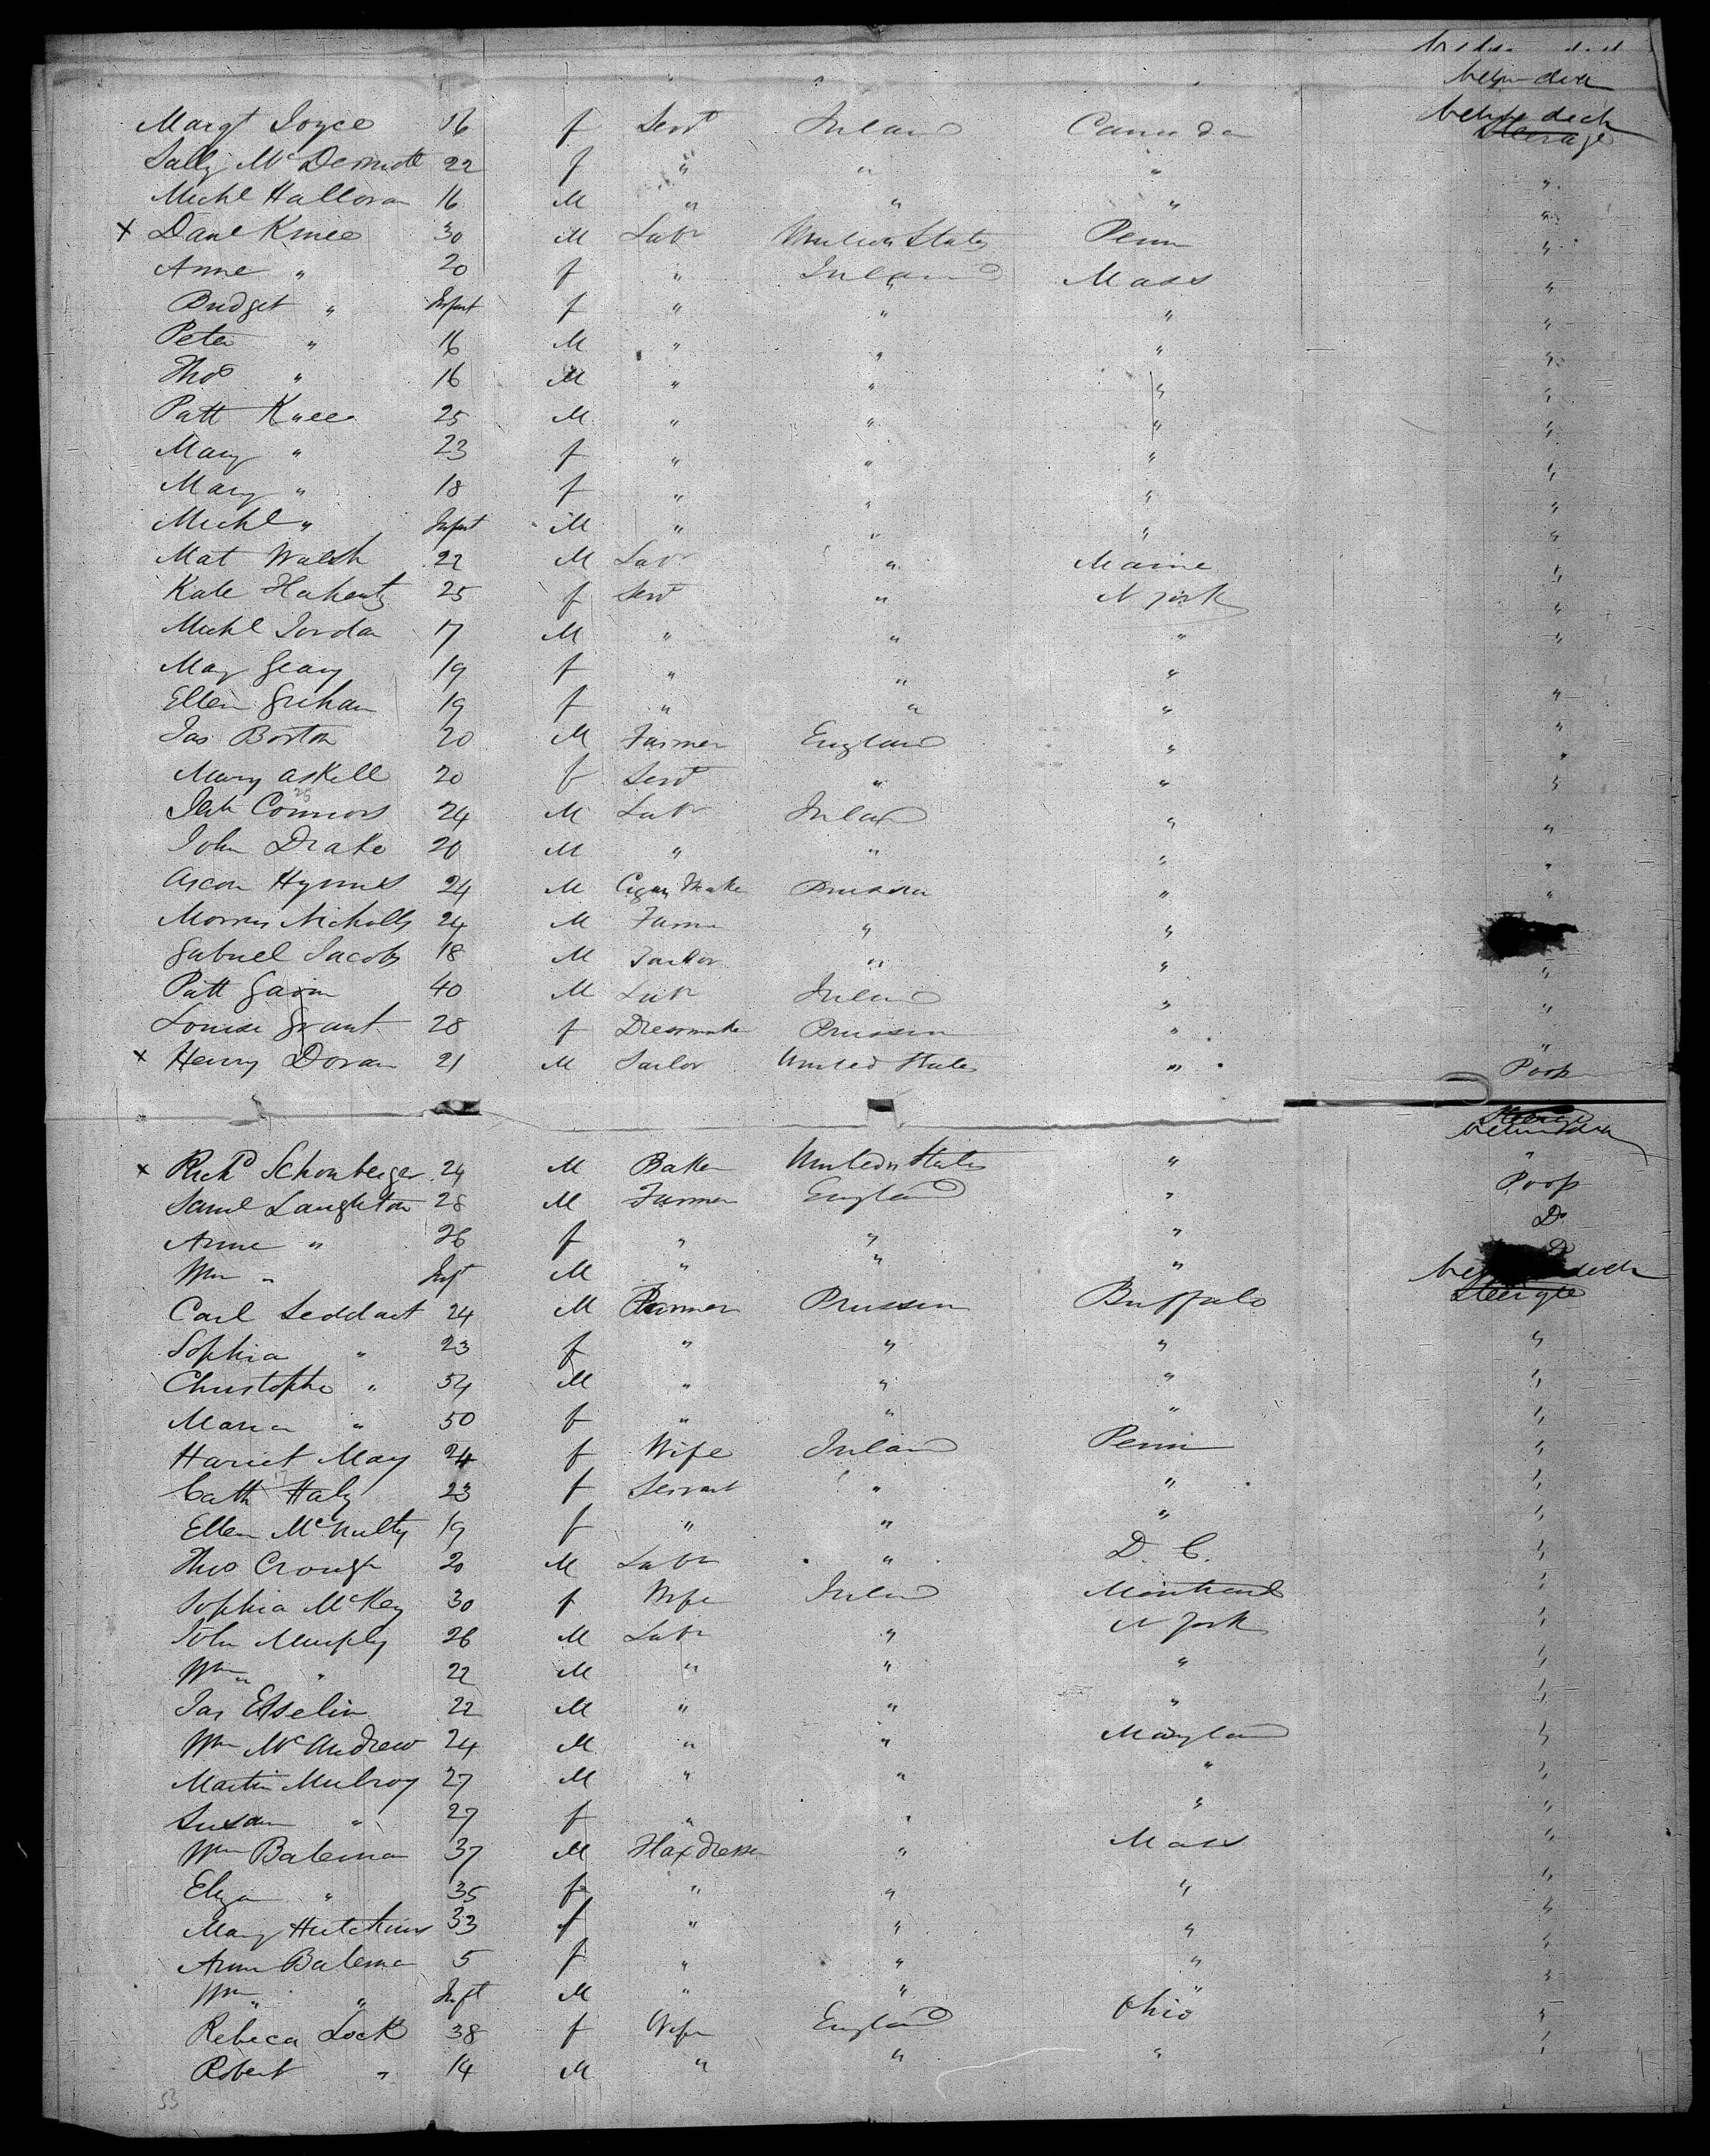 between deck
between deck
Margt Joyce 16 f Servt Ireland Canada Steerage
Sally McDermott 22 f " " " "
Michl Halloran 16 M " " " "
x Danl Knee 30 M Labr United States Penn "
Anne " 20 f " Ireland Mass "
Bridget " Infant f " " " "
Peter " 16 M " " " "
Thos " 16 M " " " "
Patt Knee 25 M " " " "
Mary " 23 f " " " "
Mary " 18 f " " " "
Michl " Infant M " " " "
Mat Walsh 22 M Labr " Maine "
Kate 25 f Servt " N York "
Michl Jordan 17 M " " " "
Mary Geary 19 f " " "
Ellen Grehan 19 f " " " "
Jas Borton 20 M Farmer England " "
Mary Askell 20 f Servt " " "
Connors 24 M Labr Ireland " "
25
John Drake 20 M " " " "
Hymes 24 M Cigar Maker Prussia " "
Morris Nicholls 24 M Farmer " "
Gabriel Jacobs 18 M Tailor " " "
Patt Gavin 40 M Labr Ireland " "
Louise Grant 28 f Dressmaker Prussia " "
x Henry Doran 21 M Sailor United States " Poop
Steerage
between deck
x Richd Schonberger 24 M Baker United States " "
Saml Laughton 28 M Farmer England " Poop
Anne " 26 f " " " Do
Wm " Inft M " " " Do
between deck
Carl Leddart 24 M Farmer Prussia Buffalo Steerage
Sophia " 23 f " " " "
Christophe " 54 M " " " "
Maria " 50 f " " " "
Hariet May 24 f Wife Ireland Penn "
Cath Haly 23 f Servant " " "
Ellen McNulty 19 f " " " "
Thos Crough 20 M Labr " D. C. "
Sophia McKey 30 f Wife Ireland Montreal "
John Murphy 26 M Labr " N York "
Wm " 22 M " " " "
Jas Esselin 22 M " " " "
Wm McAndrew 24 M " " Maryland "
Martin Mulroy 27 M " " " "
Susan " 27 f " " " "
Wm Bateman 37 M Flax dresser " Mass "
Eliza " 35 f " " " "
Mary Hutchins 33 f " " " "
Anne Bateman 5 f " " " "
Wm " Inft M " " " "
Rebeca Lock 38 f Wife England Ohio "
Robert " 14 M " " " "
53